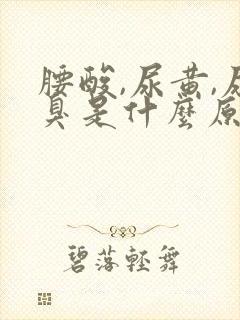 腰酸,尿黄,尿
臭是什麼原
碧落輕舞